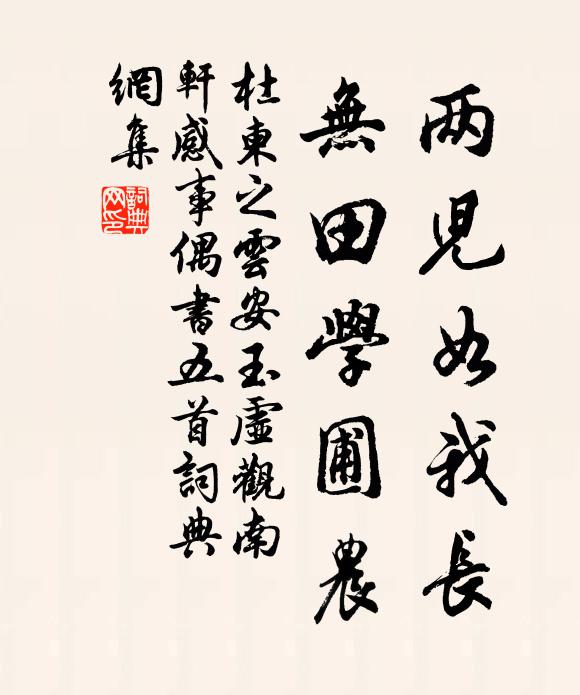 两児如我長
無田學圃農
杜東之雲安玉虛觀南
軒感事偶書五首詞典
網集
詞典
网印